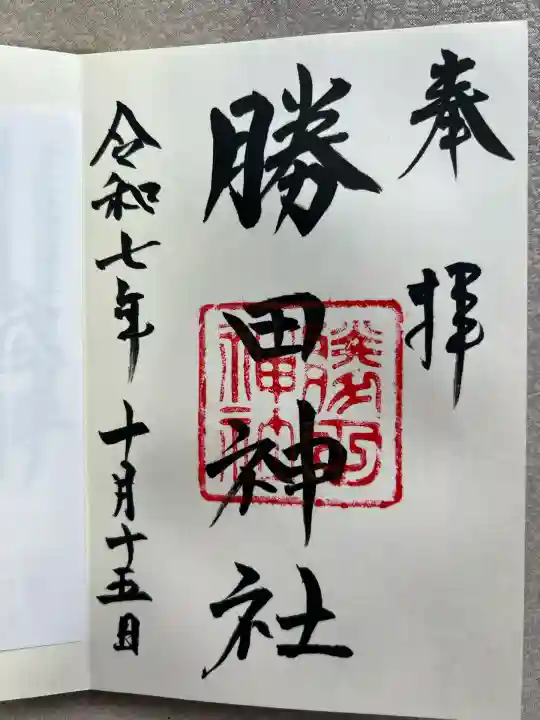 奉拝
勝田神社
勝田
神社
令和七年 十月十五日